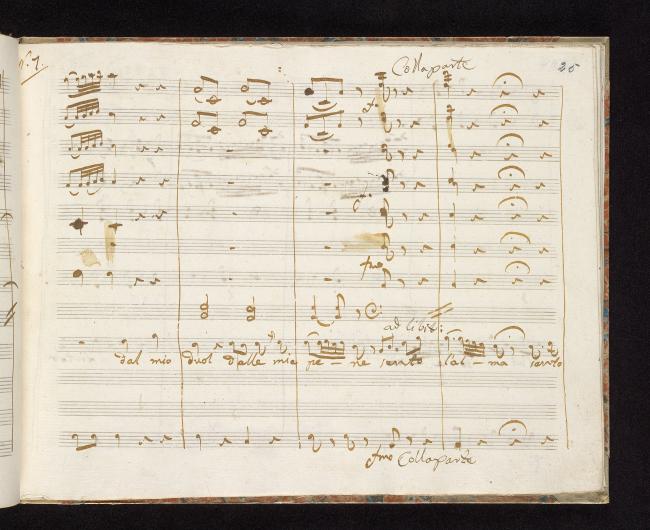 Nº. 7.
Collaparte
25
fmo
ad libit:
dal mio duol dalle mie pe - ne sento l'al - ma sento
fmo Collaparte